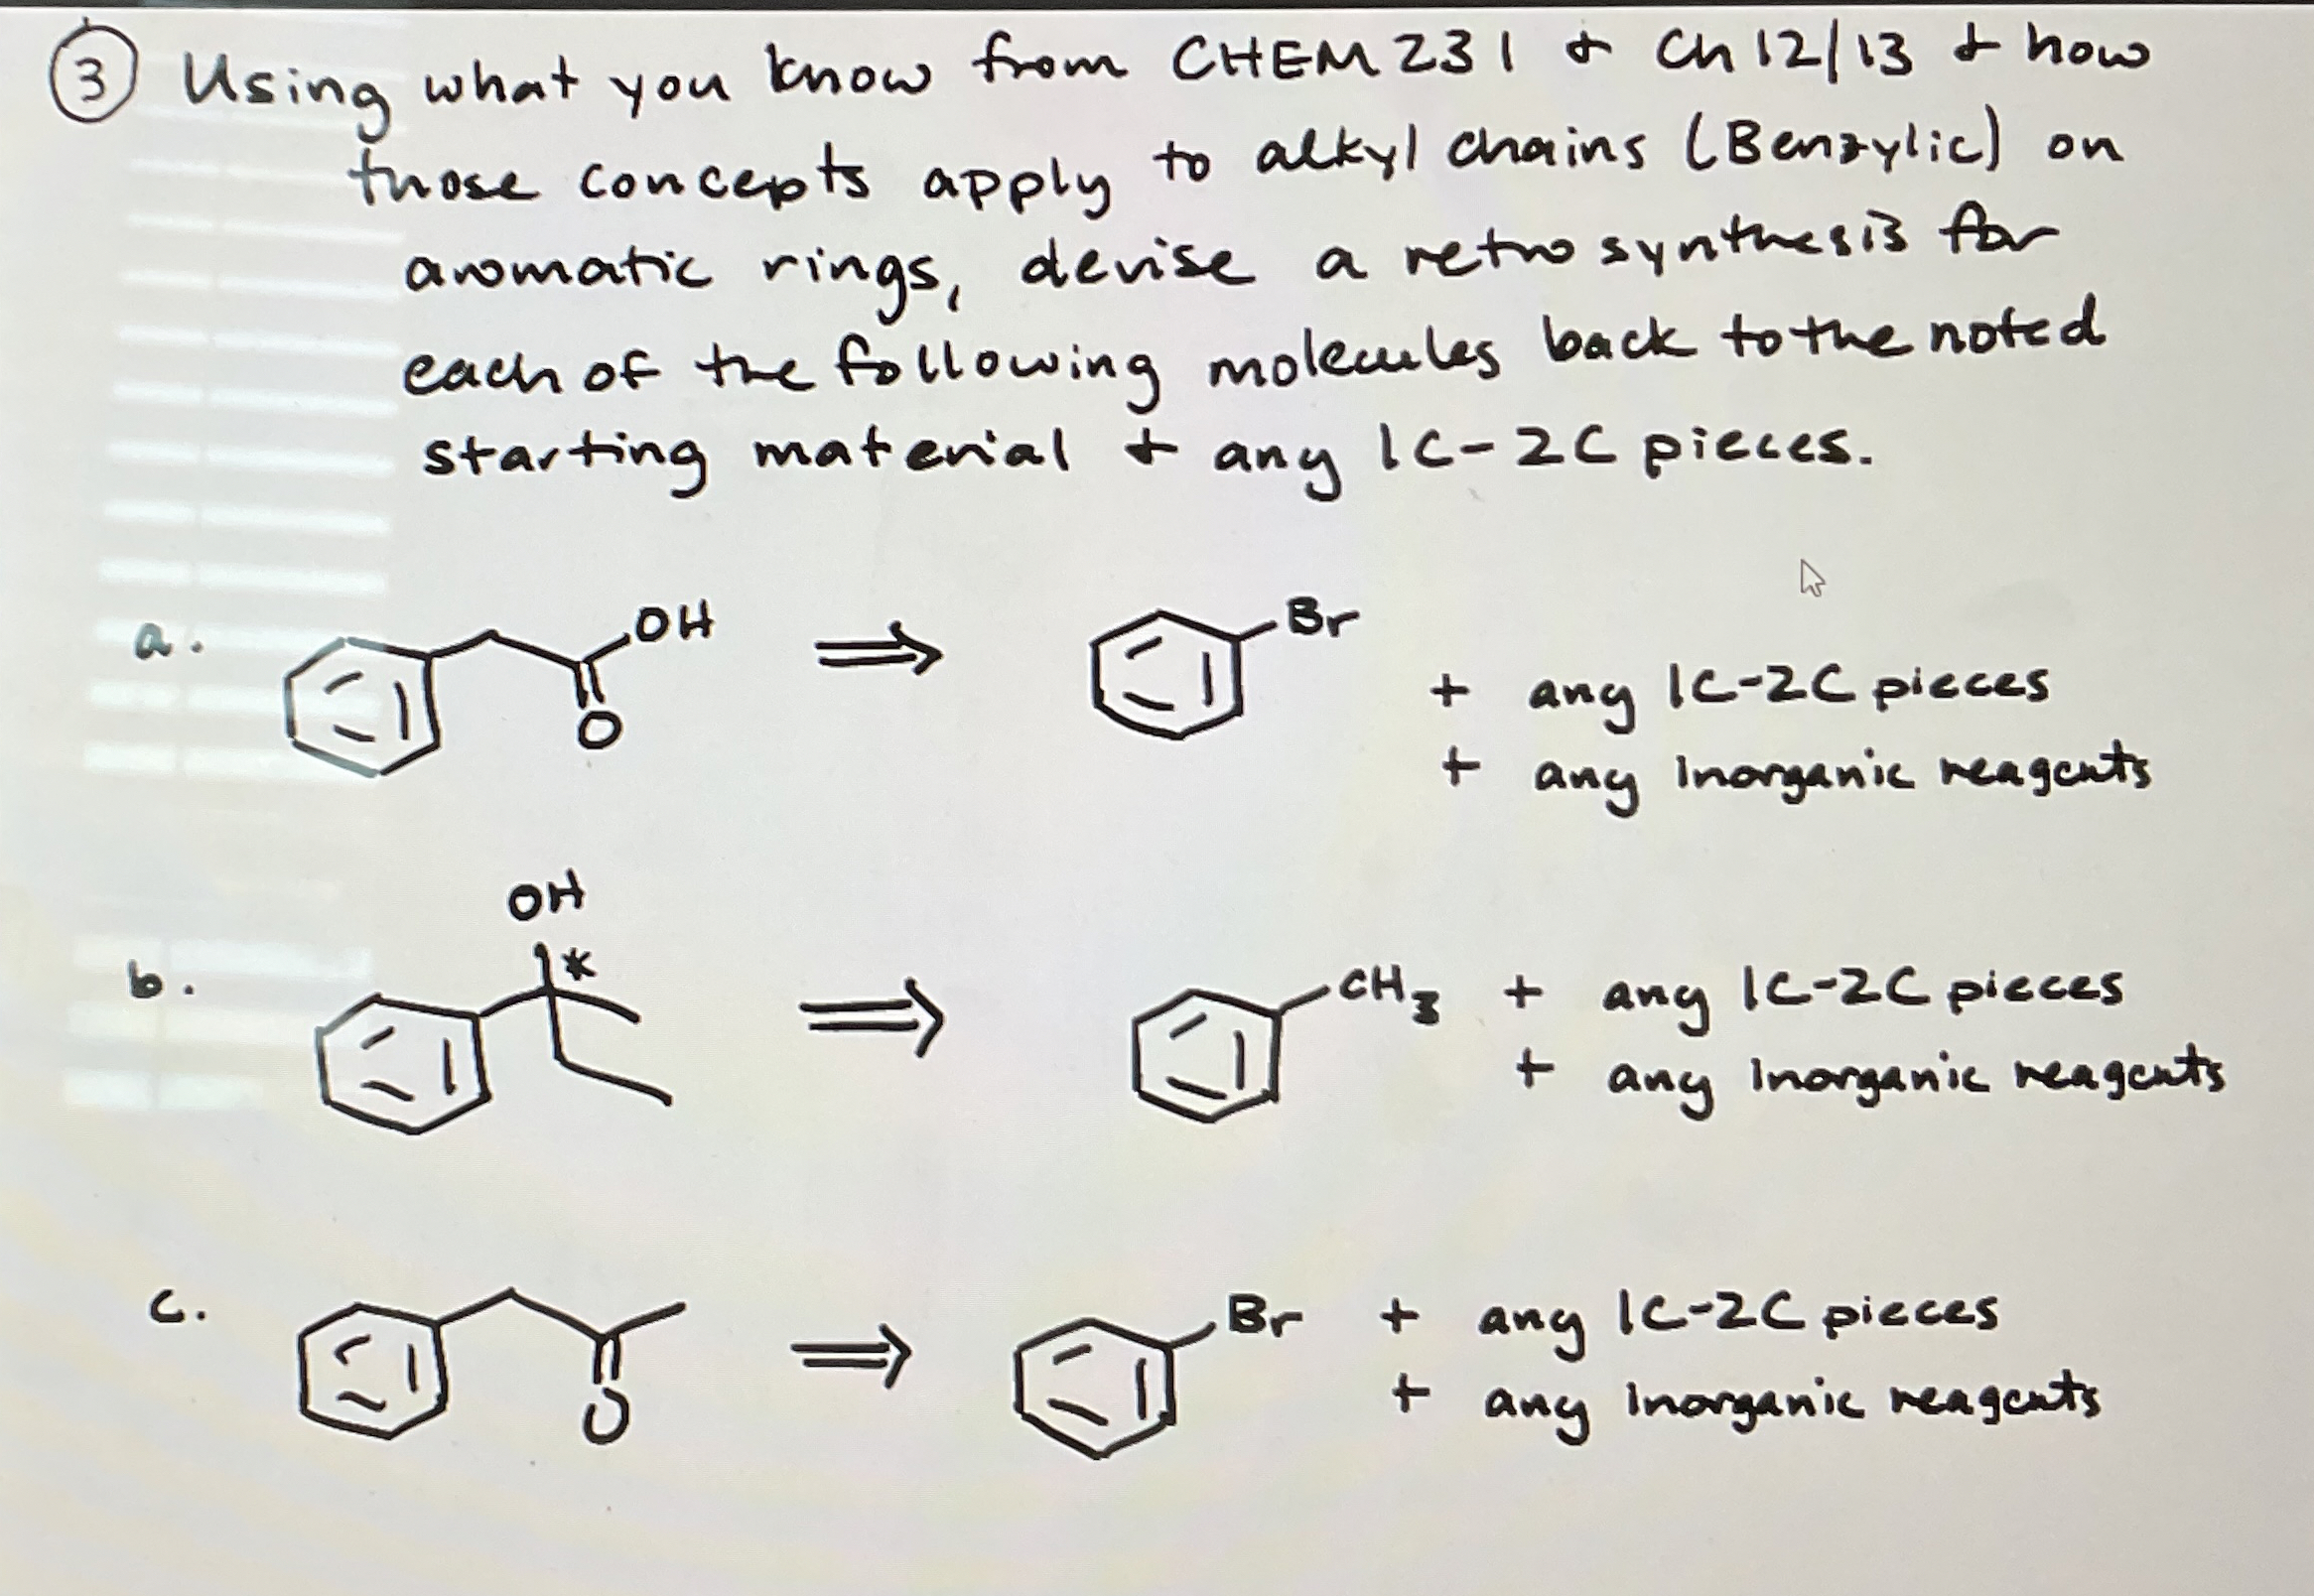 3 Using what you know from CHEM 231 & Ch 12/13 & how
those concepts apply to alkyl chains (Benzylic) on
aromatic rings, devise a retrosynthesis for
each of the following molecules back to the noted
starting material + any 1C-2C pieces.
a. OH O Br + any 1C-2C pieces
+ any inorganic reagents
b. OH * CH3 + any 1C-2C pieces
+ any inorganic reagents
c. O Br + any 1C-2C pieces
+ any inorganic reagents